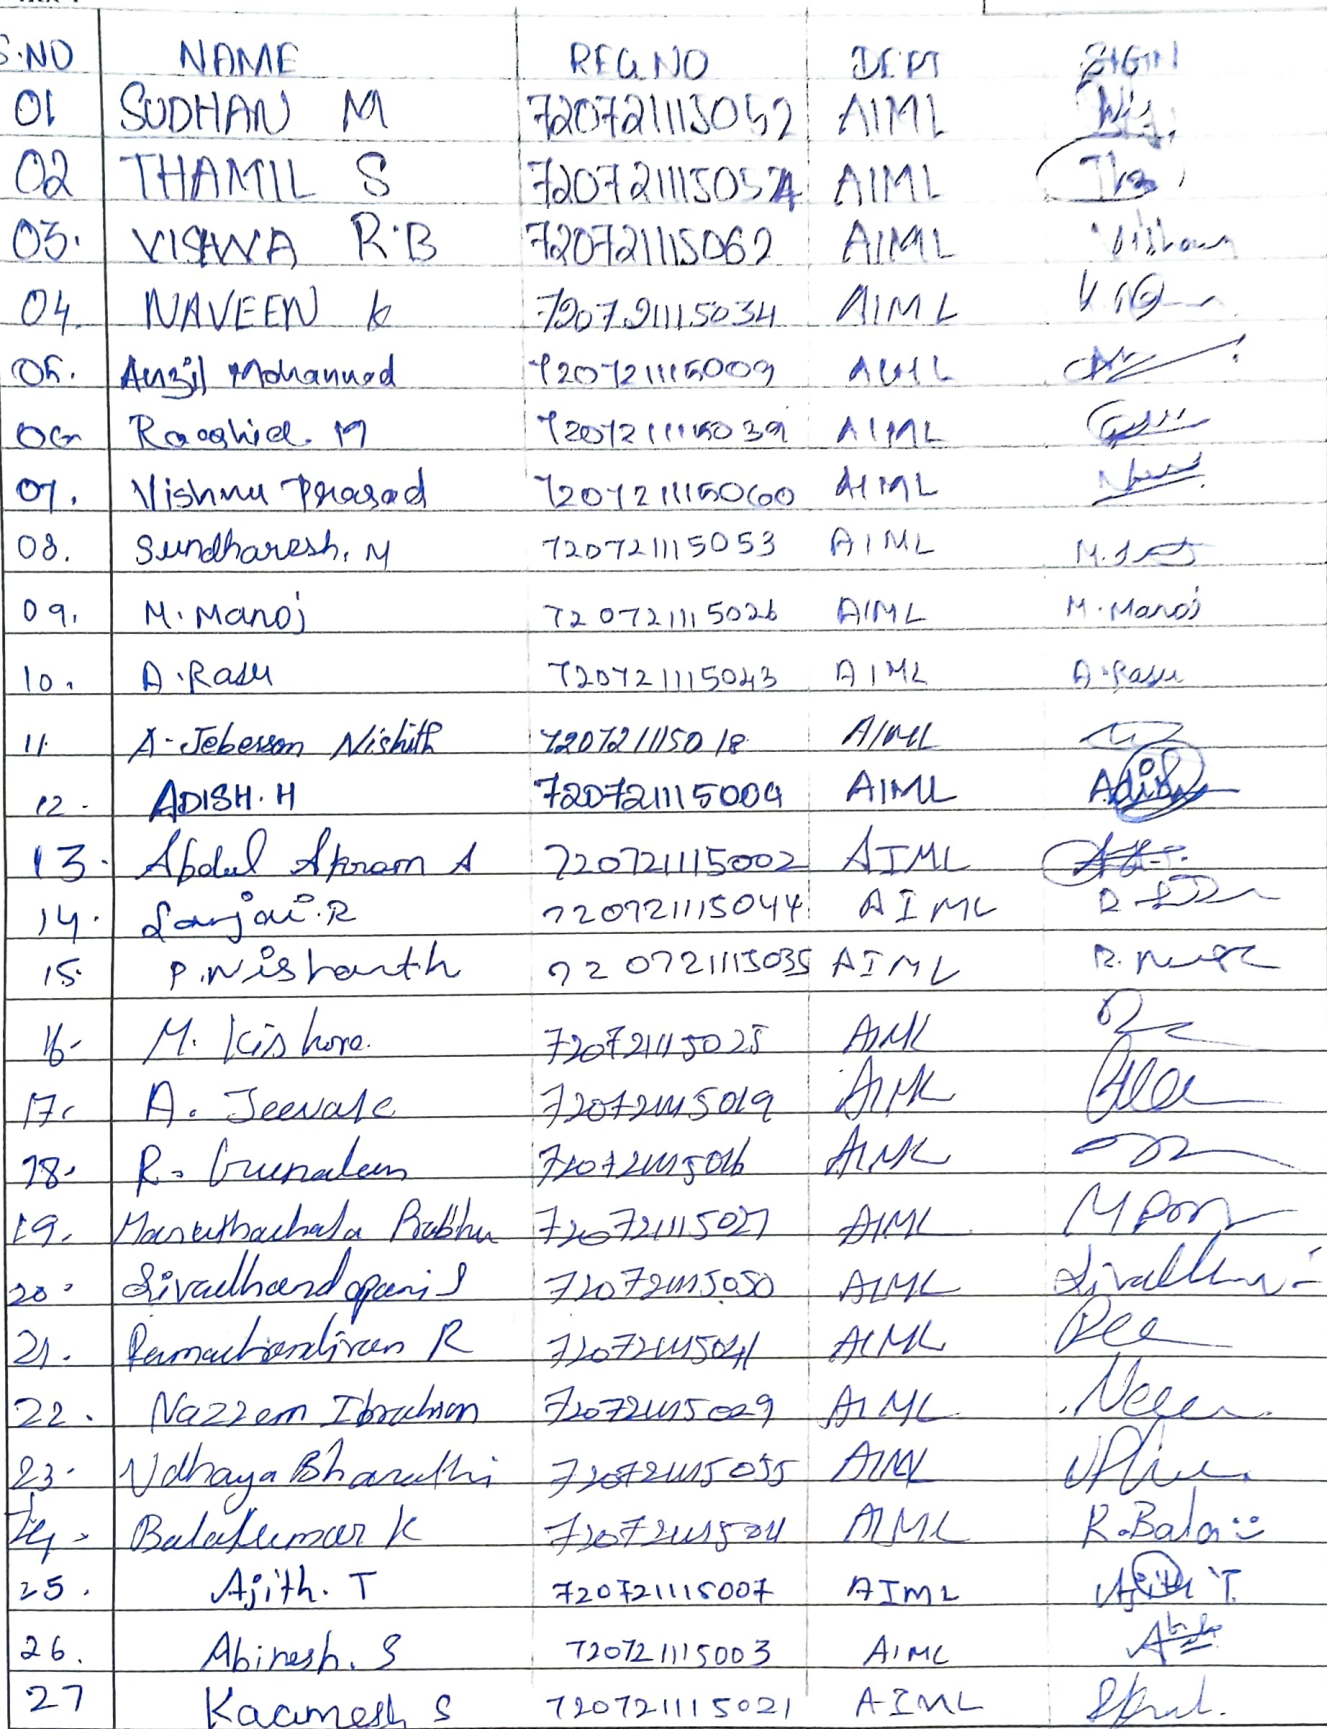 S.NO NAME REG.NO DEPT SIGN
01 SUDHAN M 720721115052 AIML
02 THAMIL S 720721115054 AIML
03. VISHWA R.B 720721115062 AIML
04. NAVEEN K 720721115034 AIML
05. Anzil Mohammed 720721115009 AIML
06 Raashid. M 720721115039 AIML
07. Vishnu Prasad 720721115060 AIML
08. Sundharesh. M 720721115053 AIML
09. M. Manoj 720721115026 AIML M. Manoj
10. A. Rasu 720721115043 AIML A. Rasu
11. A. Jeberson Nishith 720721115018 AIML
12. ADISH. H 720721115004 AIML Adish
13. Abdul Akram A 720721115002 AIML
14. Sanjai. R 720721115044 AIML
15. P. Nishanth 720721115035 AIML
16. M. Kishore. 720721115025 AIML
17. A. 720721115019 AIML
18. R. 720721115016 AIML
19. Maruthachala Prabhu 720721115027 AIML
20. Sivadhandapani S 720721115050 AIML
21. Ramachandiran R 720721115041 AIML
22. Nazzem Ibrahim 720721115029 AIML
23. Udhaya Bharathi 720721115055 AIML
24. Balakumar K 720721115011 AIML K. Bala
25. Ajith. T 720721115007 AIML Ajith T.
26. Abinesh. S 720721115003 AIML
27 Kaamesh S 720721115021 AIML